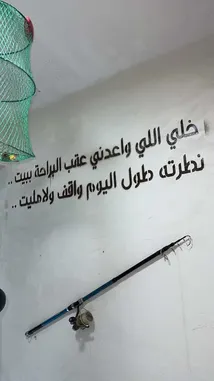 خلي اللي واعدني عقب البراحة ببيت ..
نطرته طول اليوم واقف ولامليت ..